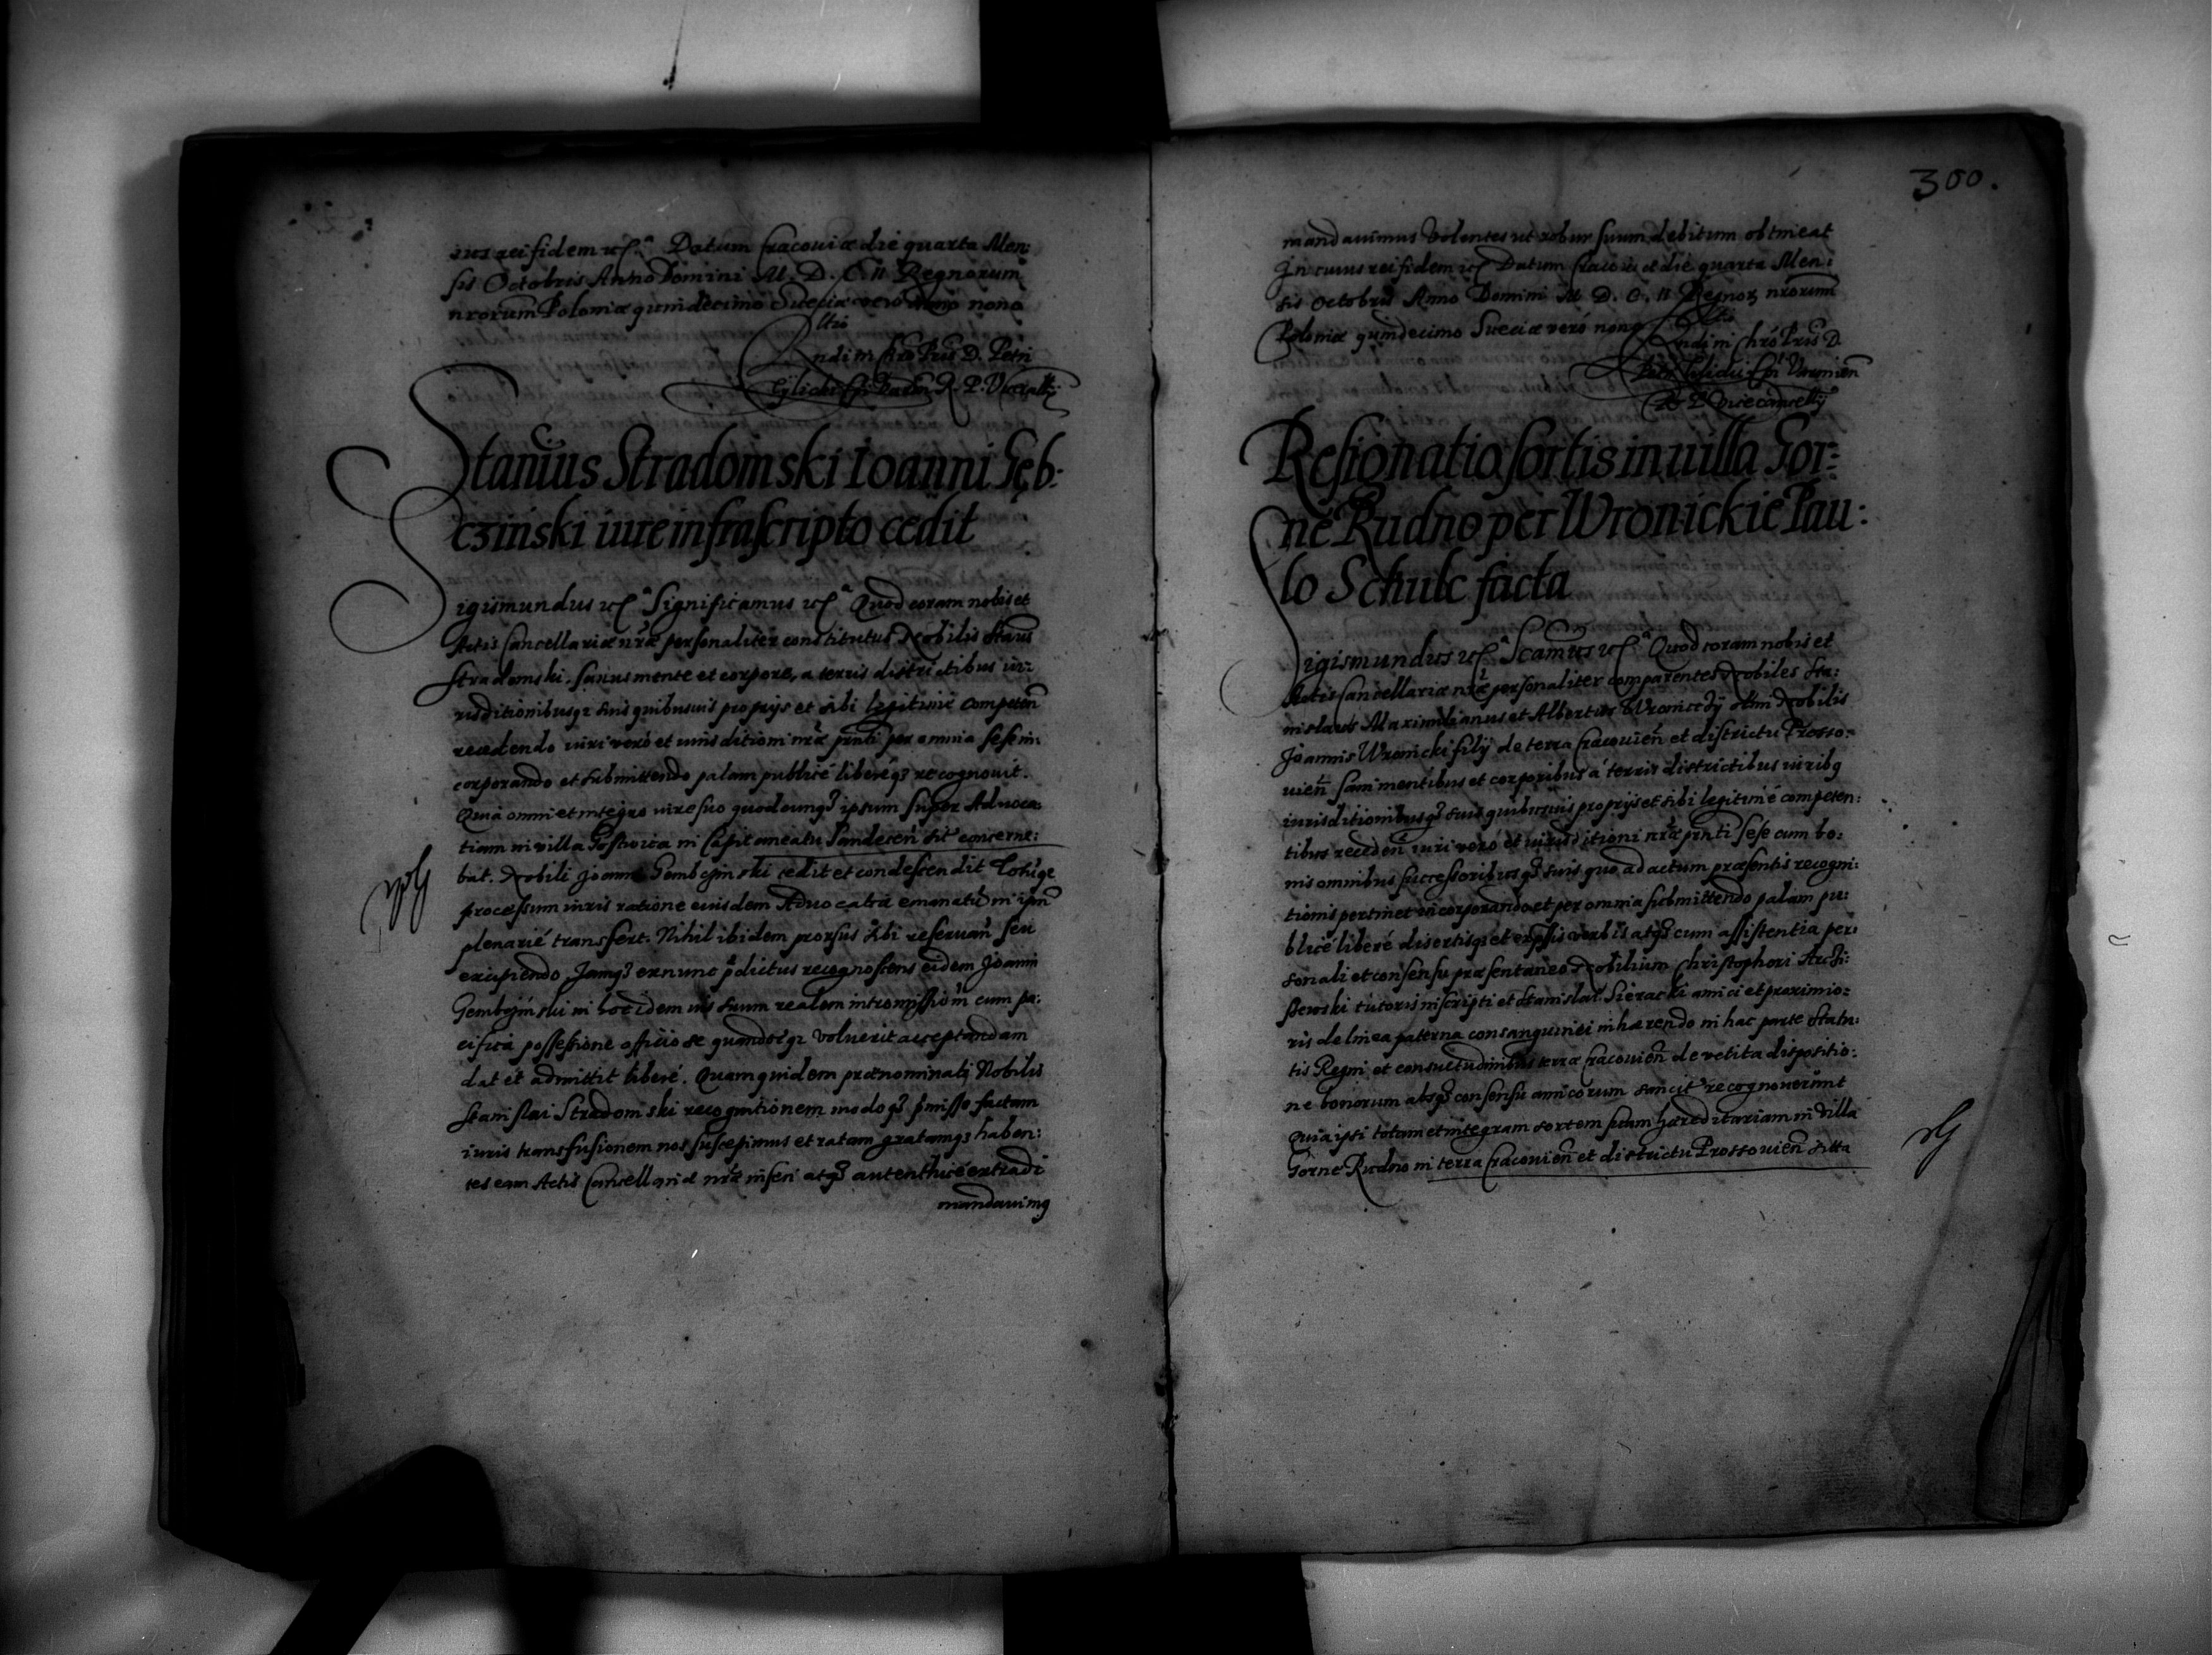 ius rei fidem etc. Datum Cracouiæ die quarta Men:
sis Octobris Anno Domini M. D. C. II Regnorum
nrorum Poloniæ quindecimo Sueciæ vero Anno nono
Rndi in Chro Pris D. Petri
Stanius Stradomski Ioanni Gęb:
cziński iure infrascripto cedit
Sigismundus etc. Significamus etc. Quod coram nobis et
Actis Cancellariæ nræ personaliter constitutus Nobilis Stanis
Stradomski, sanus mente et corpore, a terris districtibus iu:
risditionibusqz suis quibusuis proprijs et sibi legitimé competen
recedendo iuri veró et iurisditioni nræ pnti per omnia sese in:
corporando et submittendo palam publicé liberéqz recognouit.
Quia omni et integro iure suo quodcunqz ipsum super Aduoca:
tiam in villa in Capitaneatu Sandecen sit concerne:
bat. Nobili Joanni Gembczinski cedit et condescendit Totúqz
processum iuris ratione eiusdem Aduocatiæ emanatú in ipm
plenarié transfert. Nihil ibidem prorsus sibi reseruan seu
excipiendo Jamqz exnunc pdictus recognoscens eidem Joanni
Gembczinski in hoc idem ius suum realem intromissiom cum pa:
cifica possessione officiose quandocúqz voluerit acceptandam
dat et admittit liberé. Quamquidem prænominati Nobilis
Stanislai Stradomski recognitionem modoqz pmisso factam
iuris transfusionem nos suscepimus et ratam gratamqz haben:
tes eam Actis Cancellariæ nræ inseri atqz autenthicé extradi
mandauimq
300.
mandauimus Volentes ut robur suum debitum obtineat
In cuius rei fidem etc. Datum Cracouiæ die quarta Men:
sis Octobris Anno Domini M. D. C. II Regnorz nrorum
Poloniæ quindecimo Sueciæ veró nono
Rndi in Chró Pris D.
R. P. Vicecancellij
Resignatio sortis in uilla Gor:
ne Rudno per Wronickie Pau:
lo Schulc facta
Sigismundus etc. Scamus etc. Quod coram nobis et
Actis Cancellariæ nræ personaliter comparentes Nobiles Sta:
nislaus Maximilianus et Albertus Wroniccij olim Nobilis
Joannis Wronicki filij de terra Cracouien et districtu Prosso:
uien sani mentibus et corporibus á terris districtibus iuribq
iurisditionibusqz suis quibusuis proprijs et sibi legitimé competen:
tibus receden iuri vero et iurisditioni nræ pnti sese cum bo:
nis omnibus successoribusqz suis quo ad actum præsentis recogni:
tionis pertinet incorporando et per omnia submittendo palam pu:
blicé liberé disertisqz et expssis verbis atqz cum assistentia per:
sonali et consensu præsentaneo Nobilium Christophori Archi:
ris de linea paterna consanguinei inhærendo in hac parte Statu:
tis Regni et consuetudinibus terræ Cracouien de vetita dispositio:
ne bonorum absqz consensu amicorum sancit recognouerunt
Quia ipsi totam et integram sortem suam hæreditariam in Villa
Gorne Rudno in terra Cracouien et districtu Prossouien sitta